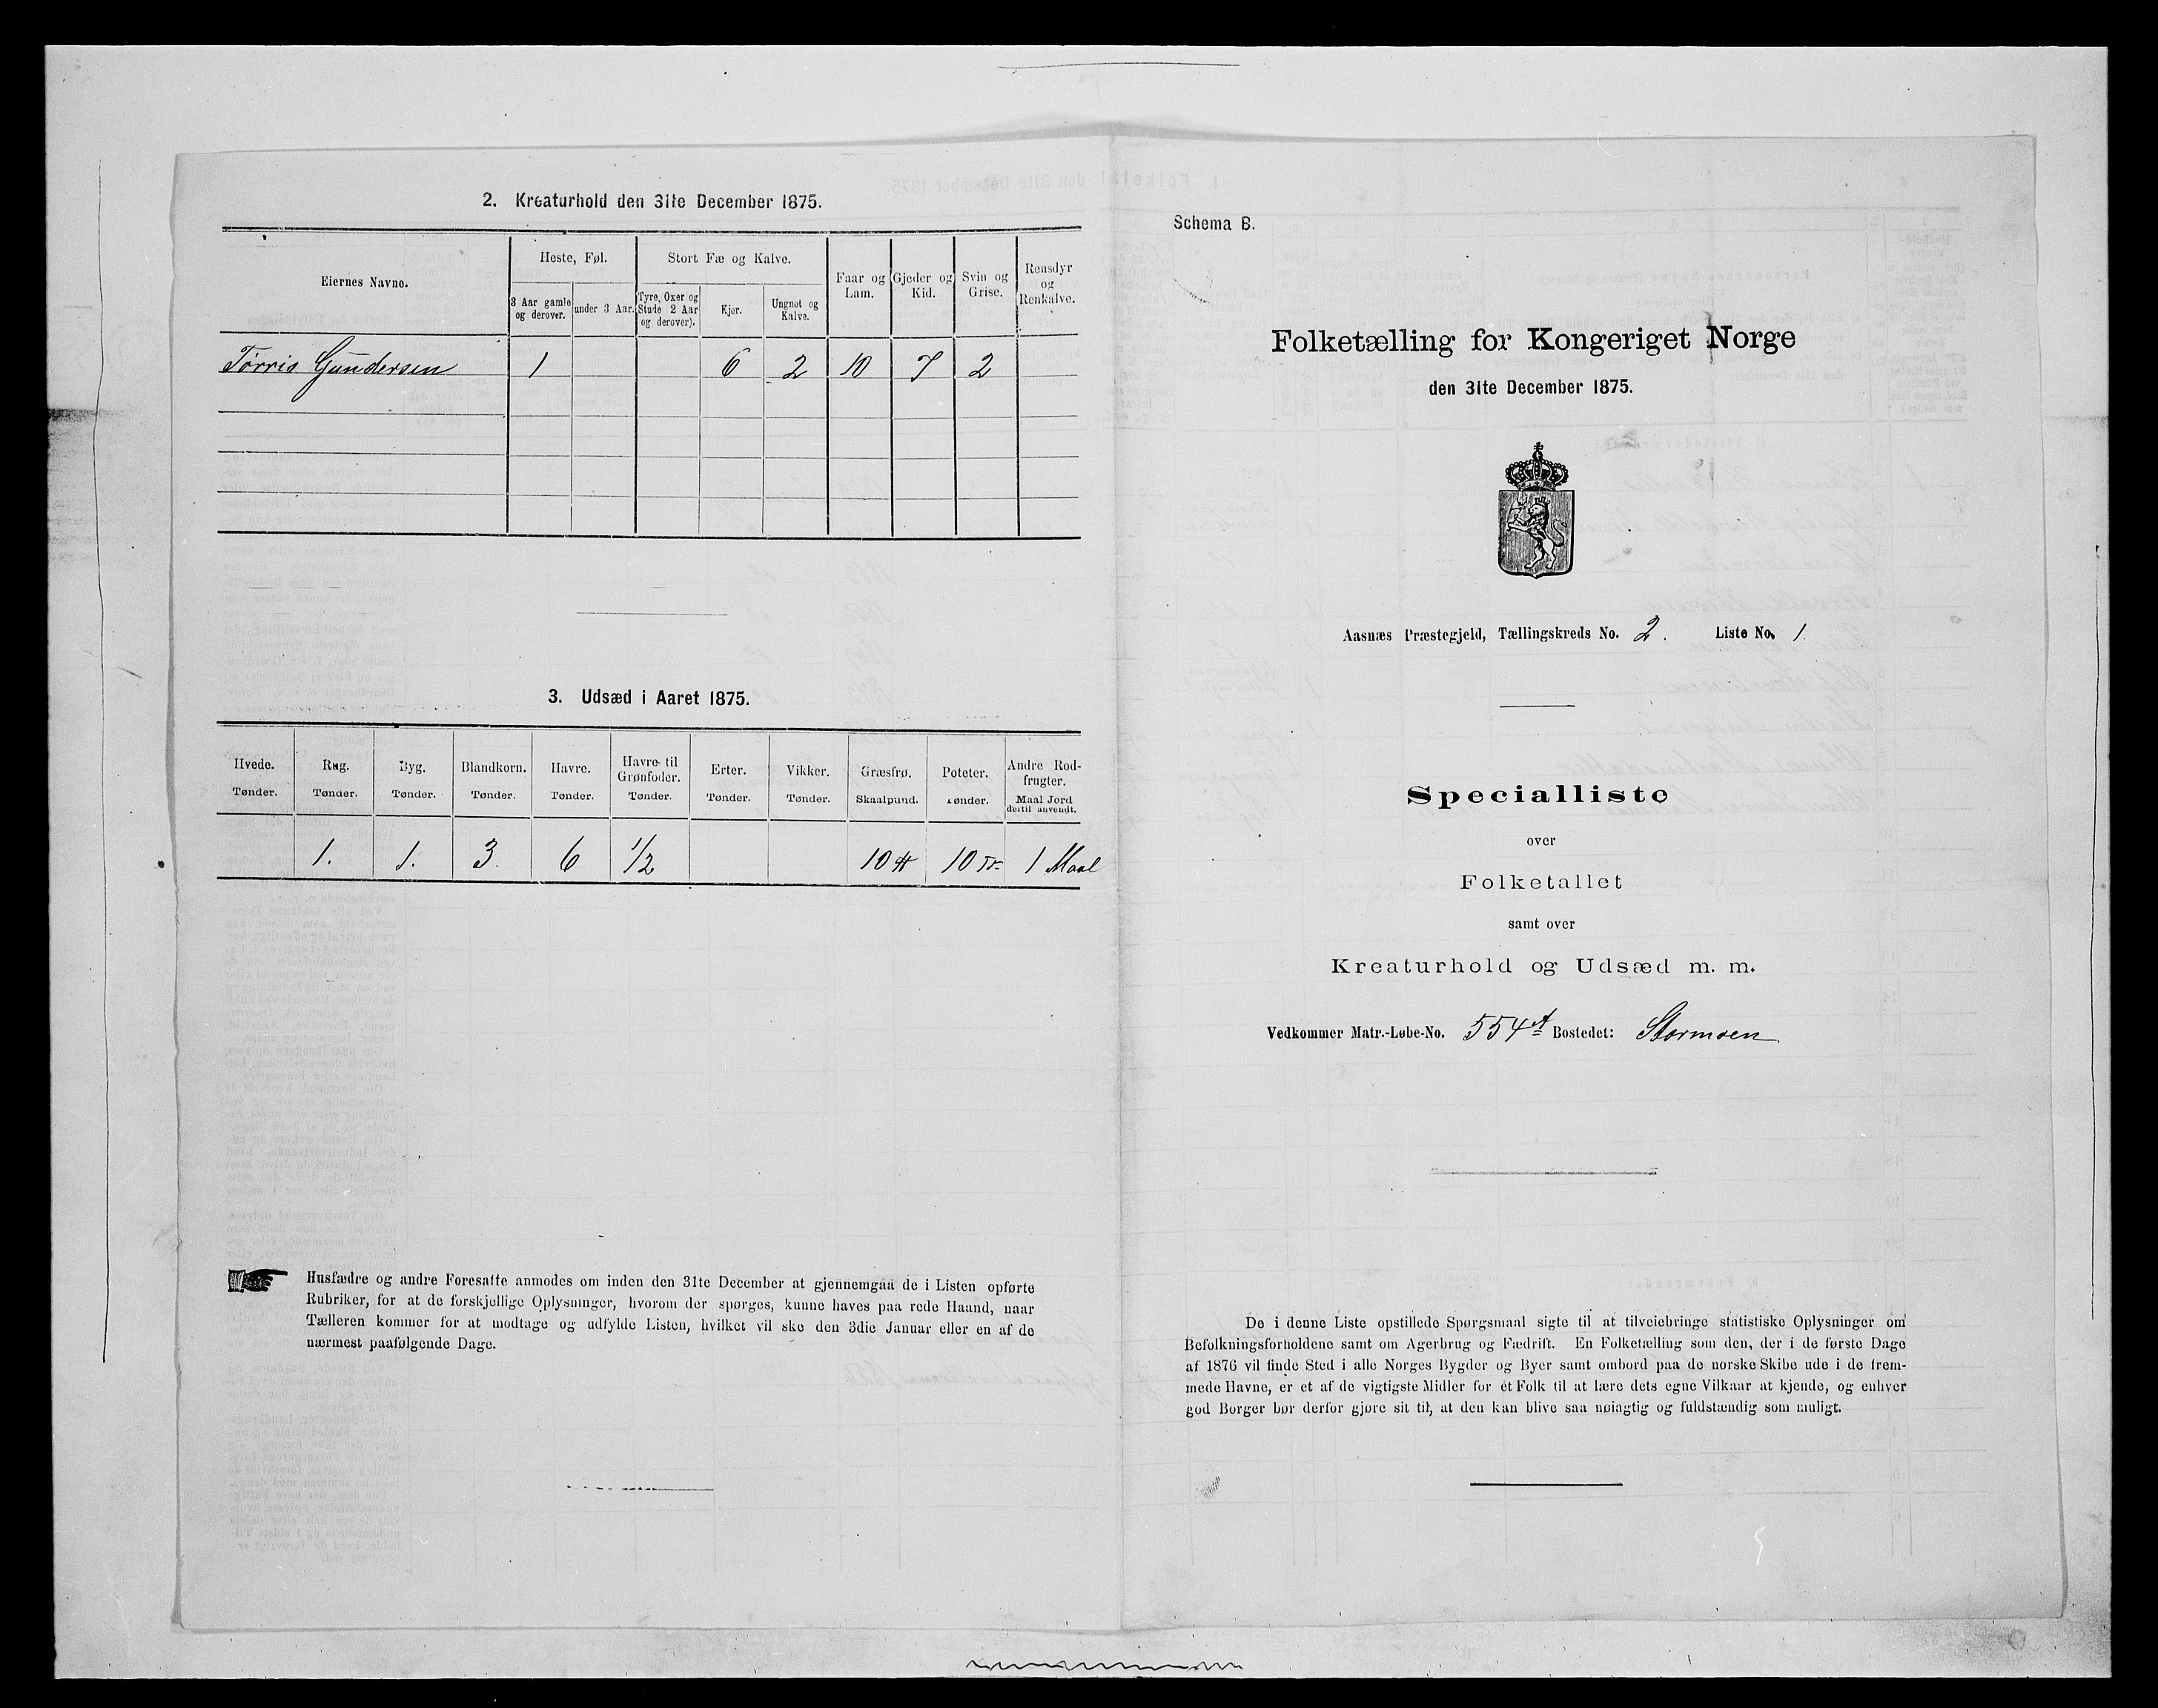 2. Kreaturhold den 31te December 1875.
Eiernes Navne.
Heste, Føl.
3 Aar gamle og derover.
under 3 Aar.
Stort Fæ og Kalve.
Tyre, Oxer og Stude 2 Aar og derover).
Kjør.
Ungnøt og Kalve.
Faar og Lam.
Gjeder og Kid.
Svin og Grise.
Rensdyr og Renkalve.
Tørris Gundersen 1 6 2 10 7 2
3. Udsæd i Aaret 1875.
Hvede. Rug. Byg. Blandkorn. Havre. Havre til Grønfoder. Erter. Vikker. Græsfrø. Poteter. Andre Rodfrugter.
Tønder. Tønder. Tønder. Tønder. Tønder. Tønder. Tønder. Tønder. Skaalpund. Tønder. Maal Jord dertil anvendt.
1. 1. 3. 6 1/2 10 ℔ 10 Tr 1 Maal
Husfædre og andre Foresatte anmodes om inden den 31te December at gjennemgaa de i Listen opførte
Rubriker, for at de forskjellige Oplysninger, hvorom der spørges, kunne haves paa rede Haand, naar
Tælleren kommer for at modtage og udfylde Listen, hvilket vil ske den 3die Januar eller en af de
nærmest paafølgende Dage.
Schema B.
Folketælling for Kongeriget Norge
den 31te December 1875.
Aasnæs Præstegjeld, Tællingskreds No. 2. Liste No. 1.
Specialliste
over
Folketallet
samt over
Kreaturhold og Udsæd m. m.
Vedkommer Matr.-Løbe-No. 554 A Bostedet: Stormoen
De i denne Liste opstillede Spørgsmaal sigte til at tilveiebringe statistiske Oplysninger om
Befolkningsforholdene samt om Agerbrug og Fædrift. En Folketælling som den, der i de første Dage
af 1876 vil finde Sted i alle Norges Bygder og Byer samt ombord paa de norske Skibe ude i de frem-
mede Havne, er et af de vigtigste Midler for et Folk til at lære dets egne Vilkaar at kjende, og enhver
god Borger bør derfor gjøre sit til, at den kan blive saa nøiagtig og fuldstændig som muligt.